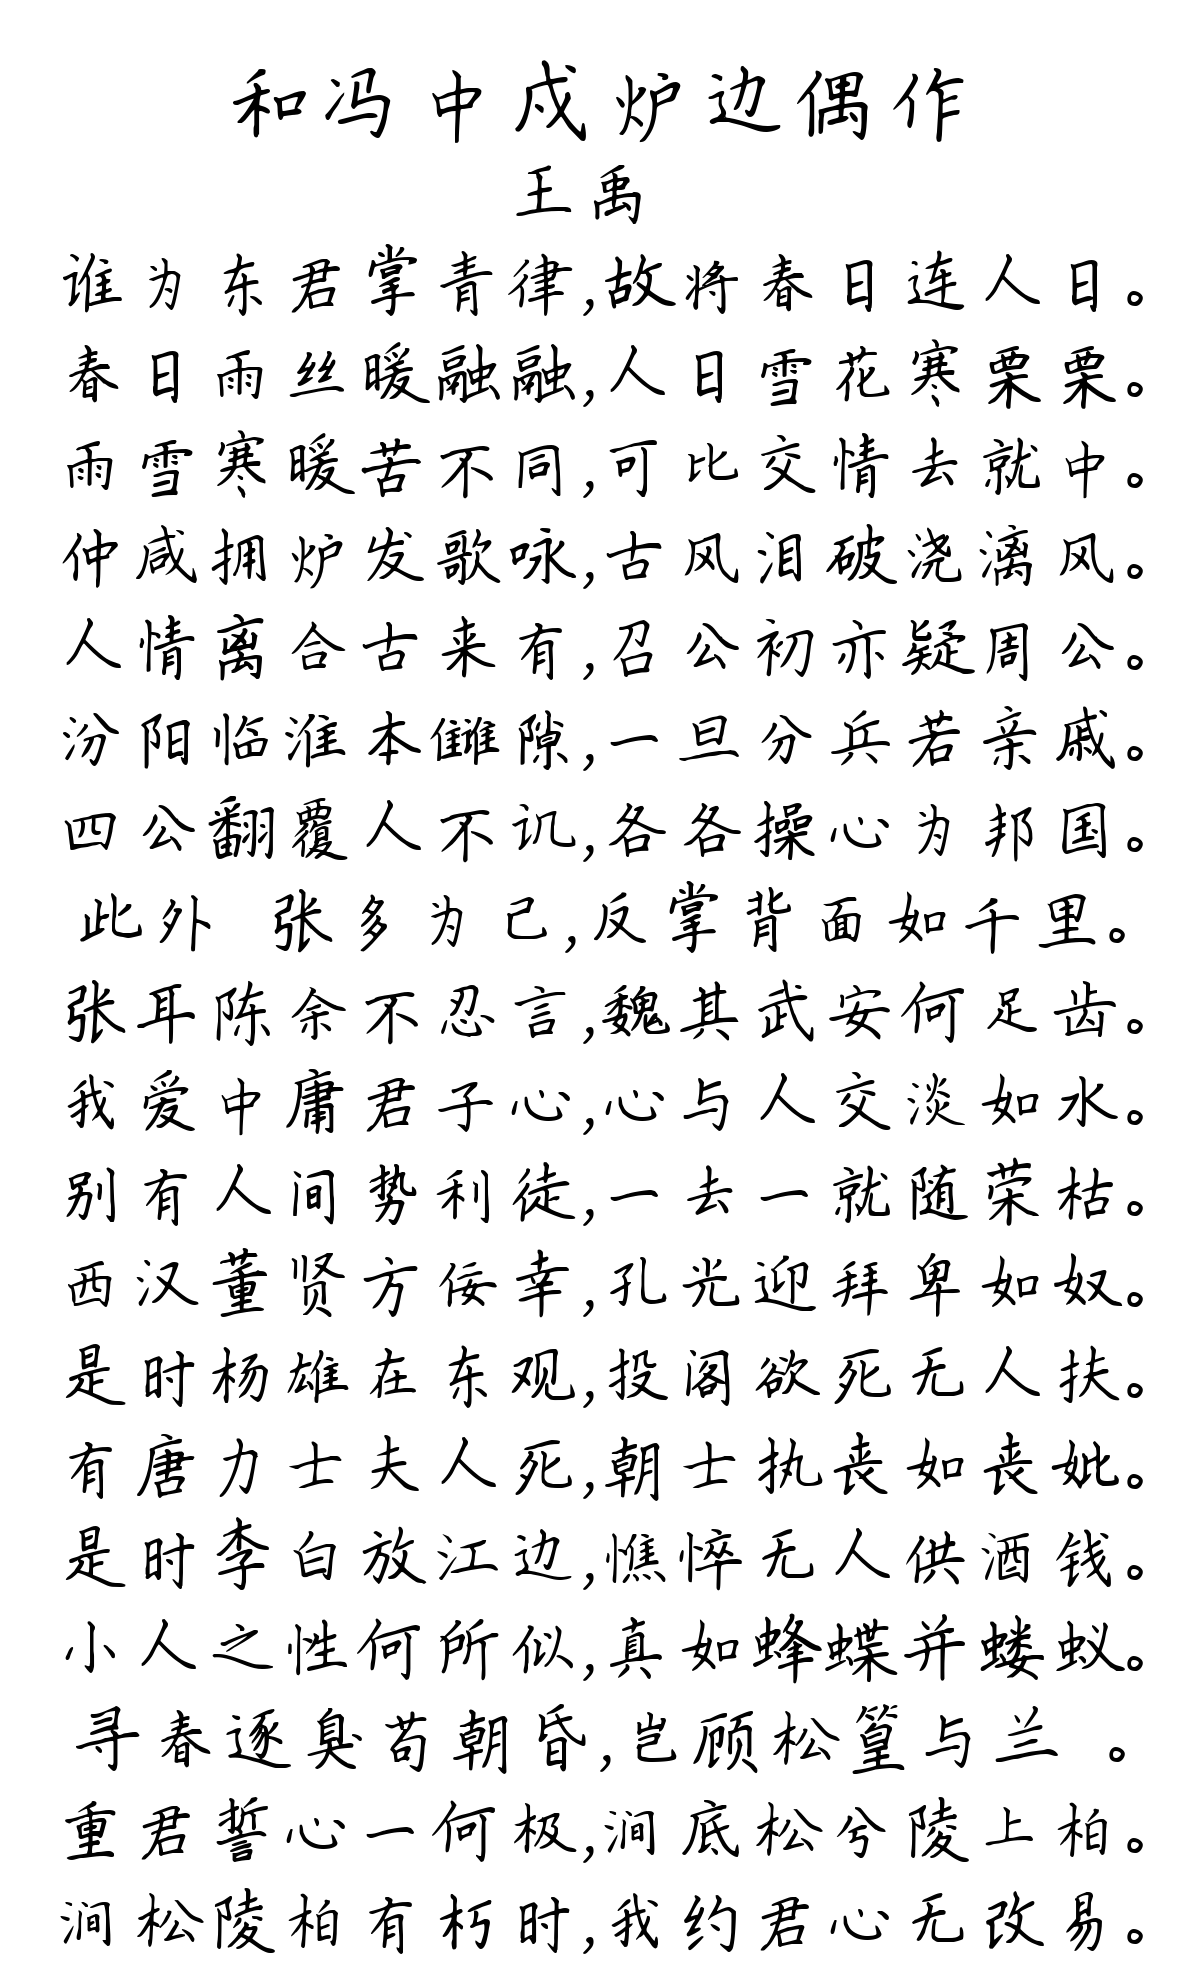 和冯中戍炉边偶作
王禹
谁为东君掌青律,故将春日连人日。
春日雨丝暖融融,人日雪花寒栗栗。
雨雪寒暖苦不同,可比交情去就中。
仲咸拥炉发歌咏,古风泪破浇漓风。
人情离合古来有,召公初亦疑周公。
汾阳临淮本雠隙,一旦分兵若亲戚。
四公翻覆人不讥,各各操心为邦国。
此外 张多为己,反掌背面如千里。
张耳陈余不忍言,魏其武安何足齿。
我爱中庸君子心,心与人交淡如水。
别有人间势利徒,一去一就随荣枯。
西汉董贤方佞幸,孔光迎拜卑如奴。
是时杨雄在东观,投阁欲死无人扶。
有唐力士夫人死,朝士执丧如丧妣。
是时李白放江边,憔悴无人供酒钱。
小人之性何所似,真如蜂蝶并蝼蚁。
寻春逐臭苟朝昏,岂顾松篁与兰 。
重君誓心一何极,涧底松兮陵上柏。
涧松陵柏有朽时,我约君心无改易。